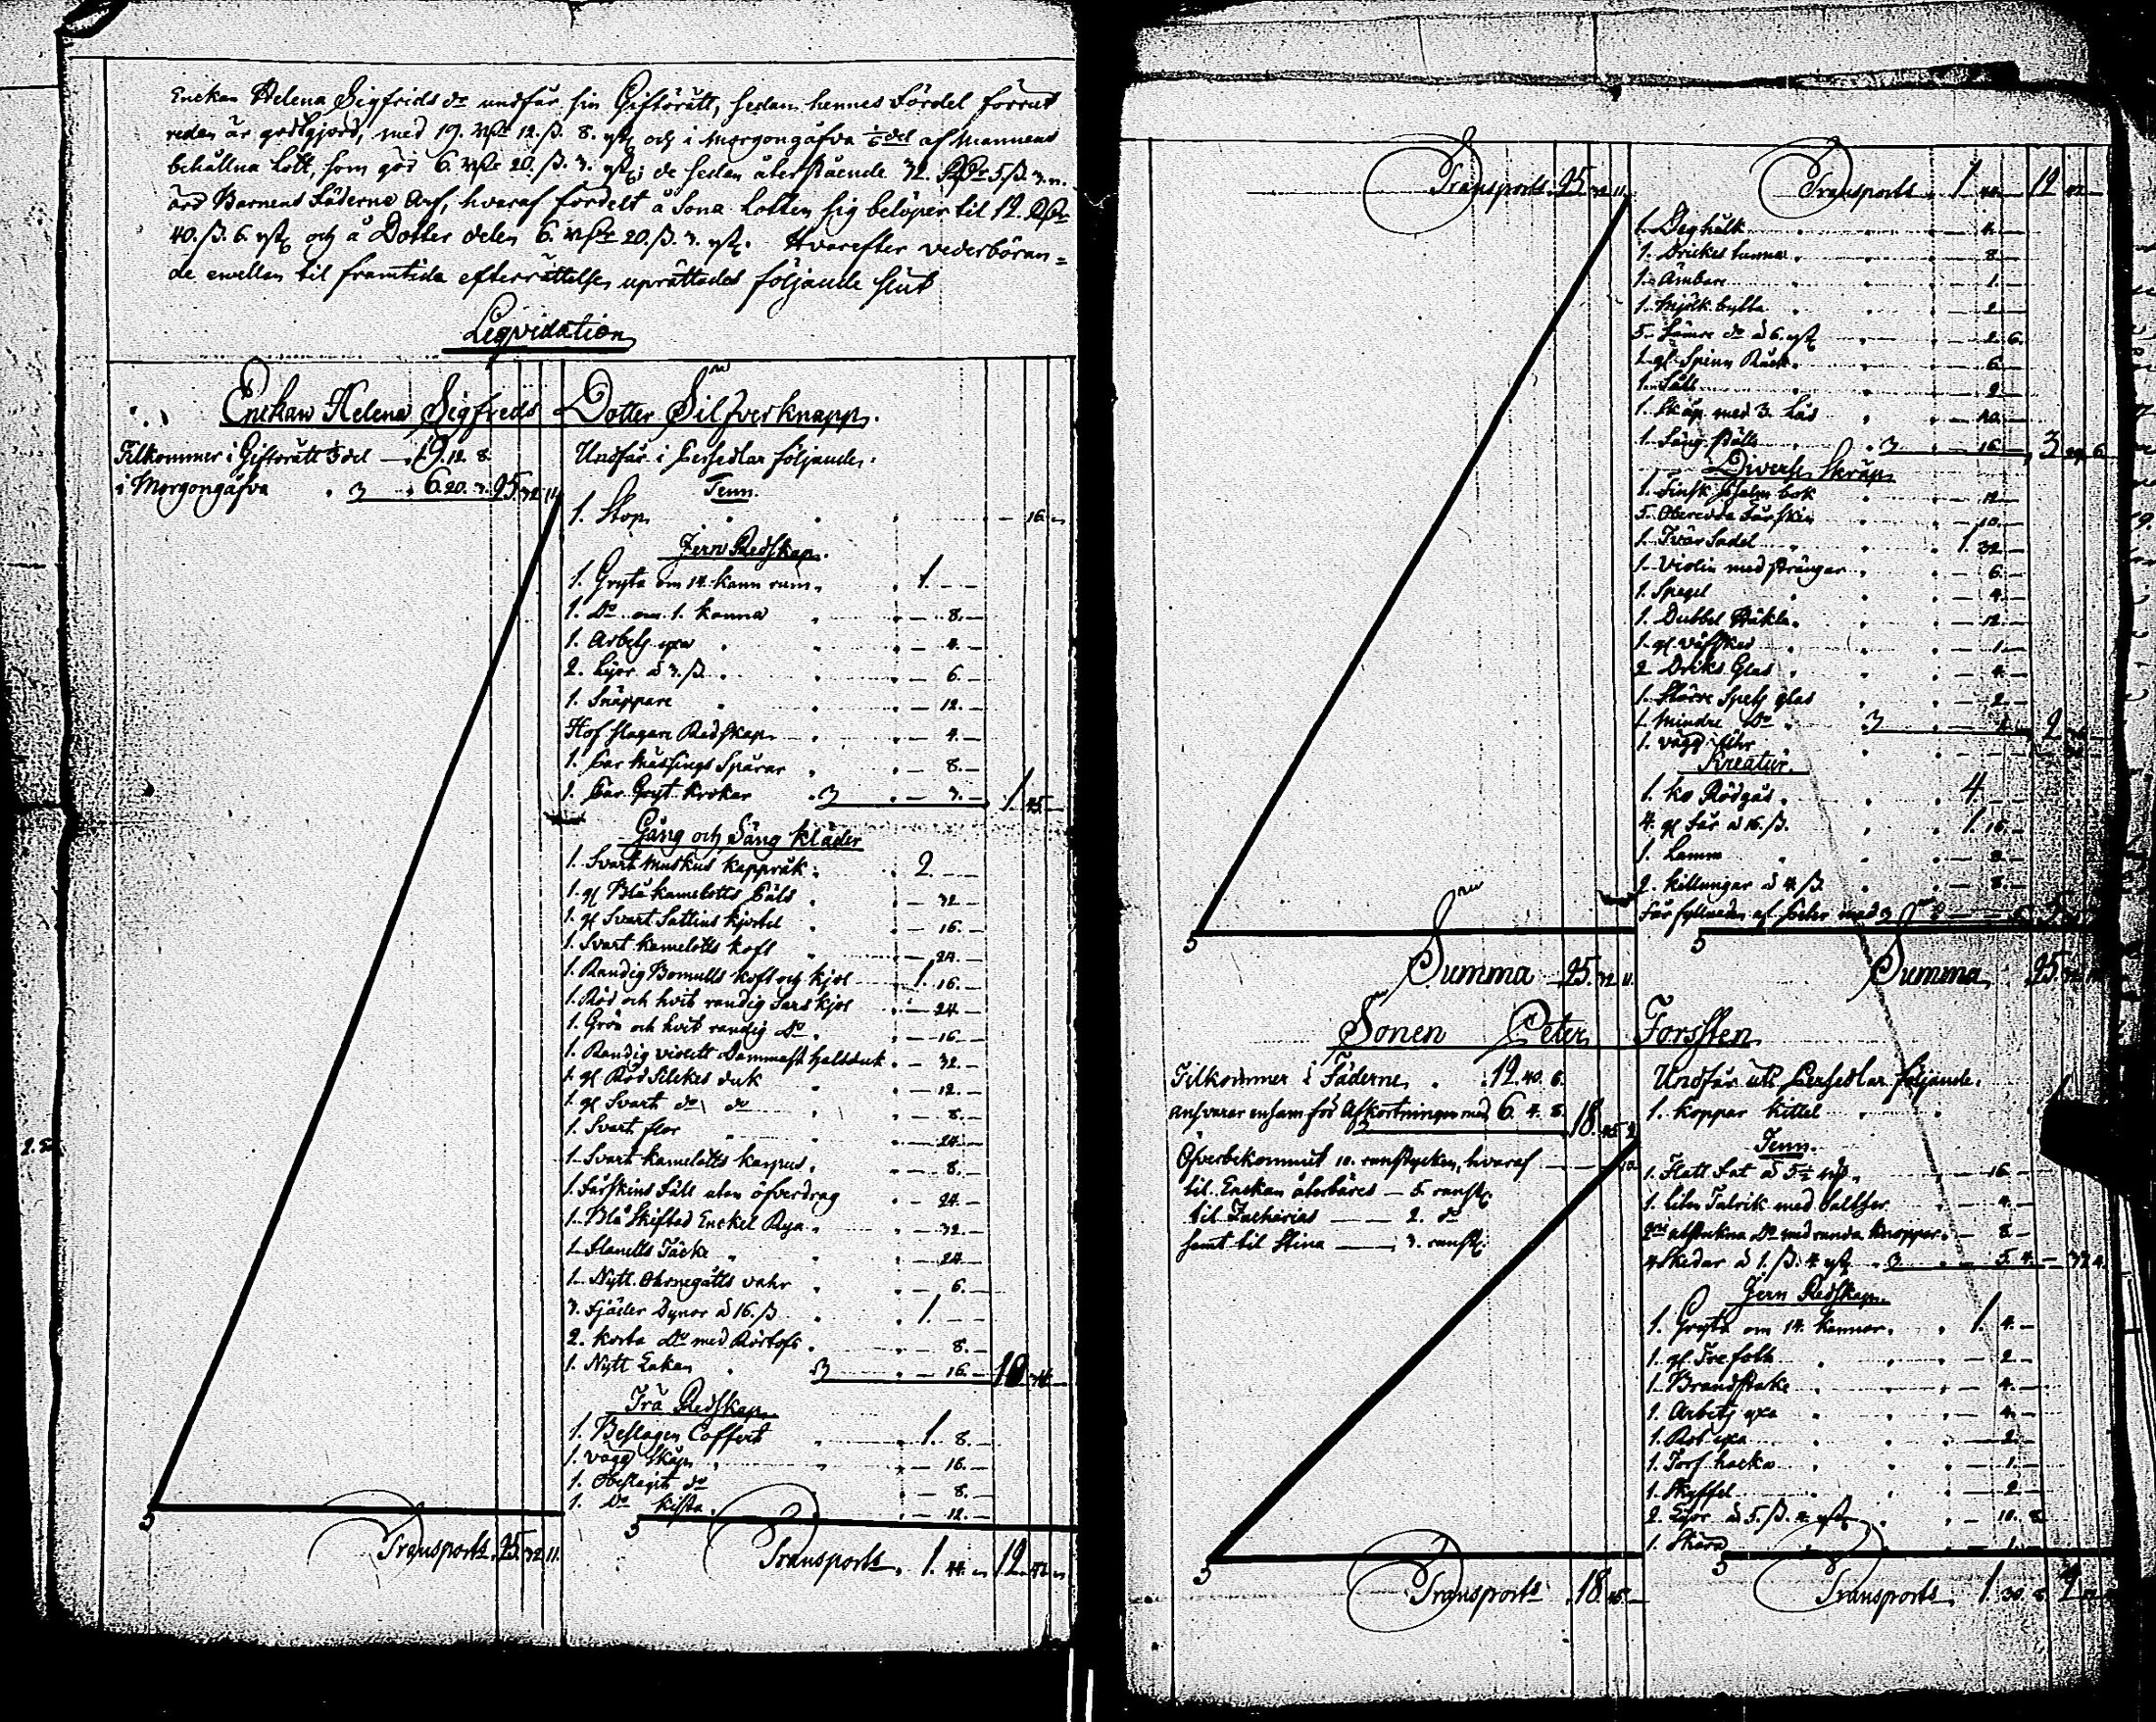 Enckan Helena Sigfrids dr undfår sin Giftorätt, sedan hennes Fördel förrut
redan är godtgjord, med 19. 12. ß. 8. och i Morgongåfva 1/6 del af Mannens
behållna Lott, som gör 6. 20. ß. 3. de sedan återstående 32. 5 ß. 3.
ärö Barnens Fäderne Arf, hvaraf fördelt å Sona Lotten sig belöper til 12.
40. ß. 6. och å Dotter delen 6. 20. ß. 3. Hvarefter vederböran=
de emellan til framtida efterrättelse uprättades följande slut
Liqvidation
Enckan Helena Sigfreds Dotter Silfverknapp.
Tilkommer i Giftorätt 1/3 del — 19. 12. 8.
i Morgongåfva 6. 20. 3. 25. 32. 11.
Transport 25. 32. 11.
Undfår i Persedlar följande.
Tenn.
1. Stop 16.
Jern Redskap.
1. Gryta om 14. kann rum. 1. —
1. Do om 1. kanna — 8. —
1. Arbets yxa — 4. —
2. Lijor á 3. ß. — 6. —
1. Snäppare — 12. —
Hof slagare Redskap — 4. —
1. Par Mässings Sporar — 8. —
1. Par Gryt krokar — 3. — 1. 45. —
Gång och Säng kläder
1. Svart kappråk 2. —
1. gl Blå kamelotts Päls — 32 —
1. gl Svart Sattins kjortel — 16. —
1. Svart kamelotts koft — 24. —
1. Randig Bomulls koft och kjol 1. 16. —
1. Röd och hvit randig Sars kjol — 24. —
1. Grön och hvit randig Do — 16. —
1. Randig violett Dammast halsduk — 32. —
1. gl Röd Silckes duk — 12. —
1. gl Svart do do — 8. —
1. Svart flor — 24. —
1. Svart kamelotts karpus — 8. —
1. Fårskins Fäll utan öfverdrag — 24. —
1. Blå skiftad Enckel Rya — 32. —
1. Flanells Täcke — 24. —
1. Nytt Örnegåtts vahr — 6. —
3. Fjäder Dynor á 16. ß 1. —
2. korta Do med — 8. —
1. Nytt Lakan — 16. — 10
Trä Redskap.
1. Beslagen Coffert 1. 8. —
1. vägg Skåp — 16. —
1. Obeslagit do — 8. —
1. Do kista — 12. —
Transport 1. 44. 12.
Transport 25. 32. 11.
Summa 25. 32. 11.
Transport 1. 12.
1. Deghålk 4. —
1. Drickes tunna — 8. —
1. Ämbare — 1. —
1. Mjölk bytta — 2. —
5. Sämre do á 6. — 2. 6.
1. gl Spinn Råck — 6. —
1. Såll — 2. —
1. Skåp med 3. Lås — 40. —
1. Säng ställe — 16. — 3. 6.
Diverse Skräp
1. Finsk Psalm bok — 12. —
5. Oberedda Fårskin — 10. —
1. Tvär Sadel 1. 32. —
1. Violin med strängar — 6. —
1. Spegel — 4. —
1. Dubbel Häkla — 12. —
1. gl väfsked — 1. —
2 Dricks Glas — 4. —
1. Större Spets glas — 2. —
1. Mindre Do 2.
1. vägg Uhr
Kreatur.
1. ko Rödgås 4. —
4. gl Får á 16. ß. 1. 16. —
1. Lamm — 8. —
2. killungar á 4. ß. — 8. —
Får fyllnaden af Peter med
Summa 25.
Sonen Peter Forssten
Tilkommer i Fäderne 12. 40. 6.
Ansvarar ensam för Afkortningen med 6. 4. 8. 18. 45. 2.
Öfverbekommit 10. runstycken, hvaraf 10.
til Enckan återbäres — 5. runst.
til Zacharias — 2. do
samt til Stina — 3. runst.
Transport 18. 45. —
Undfår uti Persedlar följande.
1. koppar kittel
Tenn.
1. Flatt Fat á 5 1/2 — 16. —
1. liten Talrik med — 4. —
Do med runda knoppar — 8. —
4 Skedar á 1. ß. 4. — 5. 4. — 4.
Jern Redskap.
1. Gryta om 14. kannor 1. 4. —
1. gl Trefot — 2. —
1. Brandstake — 4. —
1. Arbets yxa — 4. —
1. Rot yxa — 2. —
1. Torf hacka — 1. —
1. Skyffel — 2. —
2. Lijor á 5. ß. 4. — 10. 8.
1. Skära — 1.
Transport 1. 30. 8. 2.